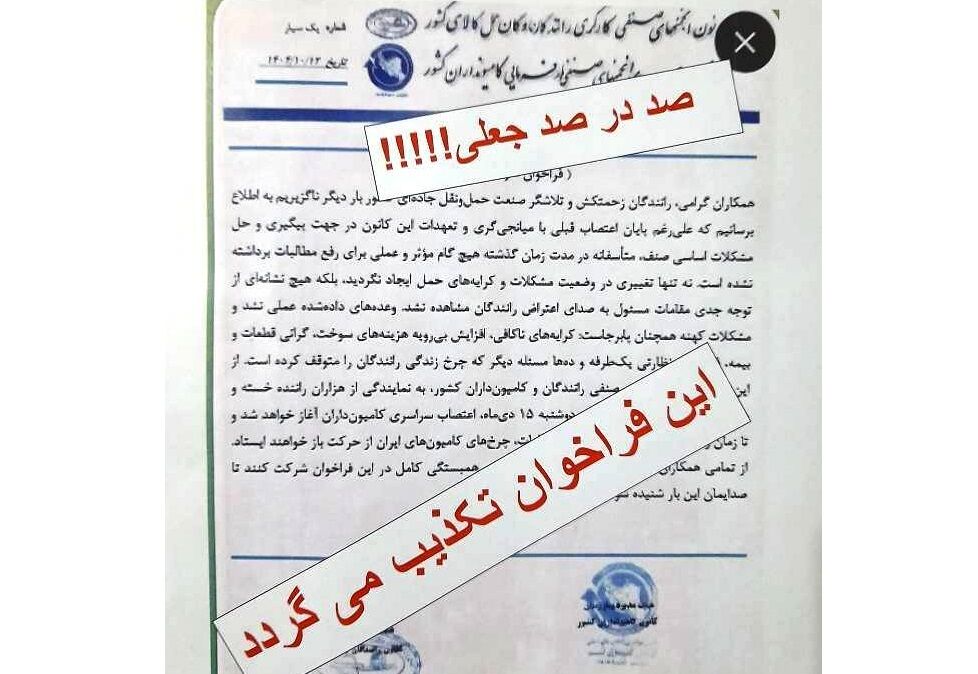 کانون انجمنهای صنفی کارگری رانندگان وکان حمل کالای کشور
شماره یک سیار
انجمنهای صنفی کارفرمایی کامیونداران کشور
تاریخ ۱۴۰۴/۱۰/۱۳
صد در صد جعلی!!!!!
( فراخوان
همکاران گرامی، رانندگان زحمتکش و تلاشگر صنعت حمل‌ونقل جاده‌ای کشور بار دیگر ناگزیریم به اطلاع
برسانیم که علی‌رغم پایان اعتصاب قبلی با میانجی‌گری و تعهدات این کانون در جهت پیگیری و حل
مشکلات اساسی صنف، متأسفانه در مدت زمان گذشته هیچ گام مؤثر و عملی برای رفع مطالبات برداشته
نشده است. نه تنها تغییری در وضعیت مشکلات و کرایه‌های حمل ایجاد نگردید، بلکه هیچ نشانه‌ای از
توجه جدی مقامات مسئول به صدای اعتراض رانندگان مشاهده نشد. وعده‌های داده‌شده عملی نشد و
مشکلات کهنه همچنان پابرجاست: کرایه‌های ناکافی، افزایش بی‌رویه هزینه‌های سوخت، گرانی قطعات و
بیمه، نظارتی یک‌طرفه و ده‌ها مسئله دیگر که چرخ زندگی رانندگان را متوقف کرده است. از
این صنفی رانندگان و کامیون‌داران کشور، به نمایندگی از هزاران راننده خسته و
دوشنبه ۱۵ دی‌ماه، اعتصاب سراسری کامیون‌داران آغاز خواهد شد و
تا زمان چرخ‌های کامیون‌های ایران از حرکت باز خواهند ایستاد.
از تمامی همکاران همبستگی کامل در این فراخوان شرکت کنند تا
صدایمان این بار شنیده شو
این فراخوان تکذیب می گردد